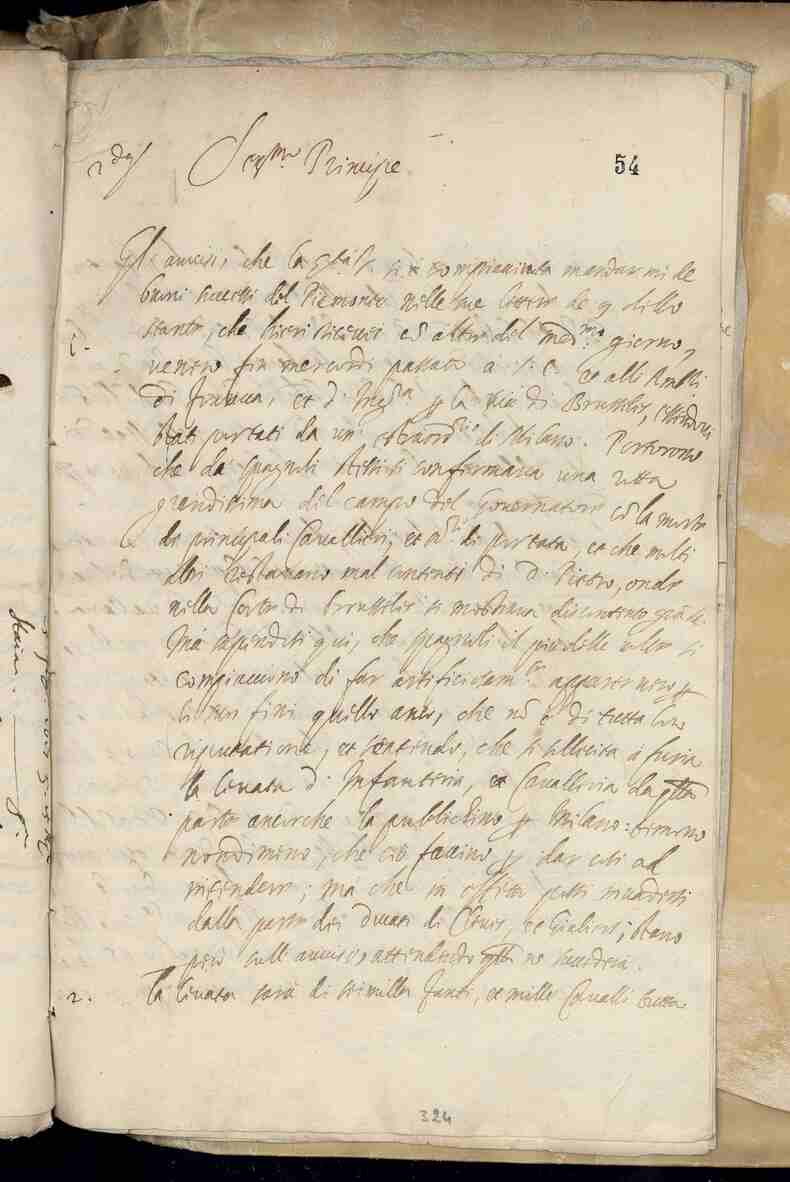 2 da
Ser.mo Principe
54
Gl'avvisi, che la S.tà V. si è compiaciuta mandarmi de
buoni successi del Piemonte nelle sue lettere de 9 dello
1.
stante, che hieri ricevei cō altre del med.mo giorno,
venero fin mercordì passato a S. E. et alli Amb.ri
di Francia, et d'Ing.ra p la via di Brusseles, essendovi
stati portati da un' estraord.rio di Milano. Portorono
che da spagnoli stessi si confermava una rotta
grandissima del campo del Governatore cō la morte
de principali Cavallieri, et di portata, et che molti
altri restavano mal contenti di d. Pietro, onde
nella Corte di Brusseles si mostrava discontento grāde.
Ma sapendosi qui, che spagnoli il più delle volte si
compiacciono di far artificiosam.te apparer vero p
li suoi fini quello anco, che nō è di tutta loro
riputatione, et sentendo, che si sollecita à furia
la levata d'Infanteria, et Cavalleria da q.lla
parte ancorche la publichino p Milano: temono
nondimeno, che ciò faccino p dar ad
intendere; ma che in effetto
dalla parte dei ducati di Cleves, et Giuliers; stano
però sull'avviso, attendendo q.llo ne succederà.
2.
La levata sarà di seimille fanti, et mille Cavalli tutta
324